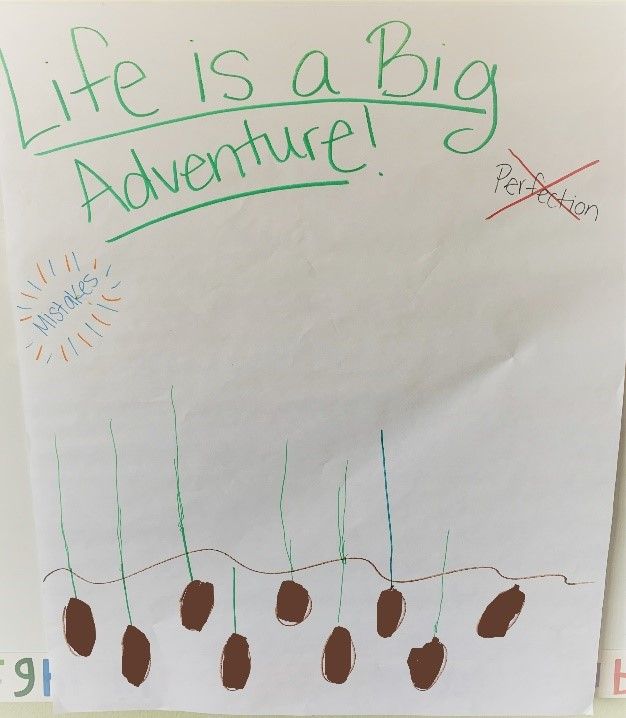 Life is a Big
Adventure!
Perfection
Mistakes